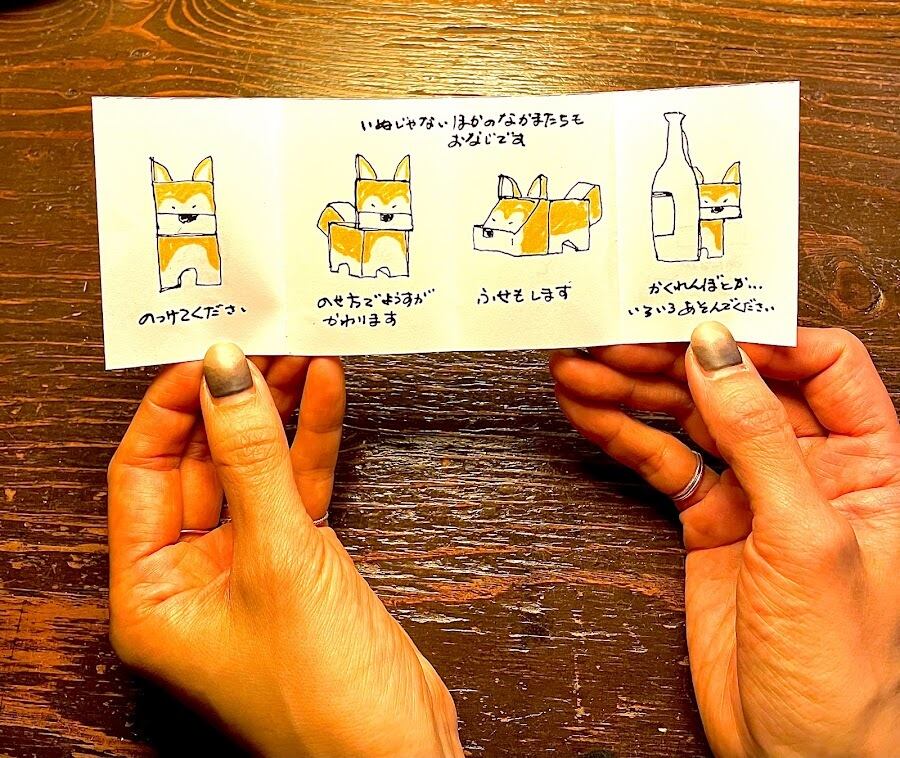 いぬじゃないほかのなかまたちも
おなじです
のっけてください
のせ方でようすが
かわります
ふせもします
かくれんぼとか...
いろいろあそんでください